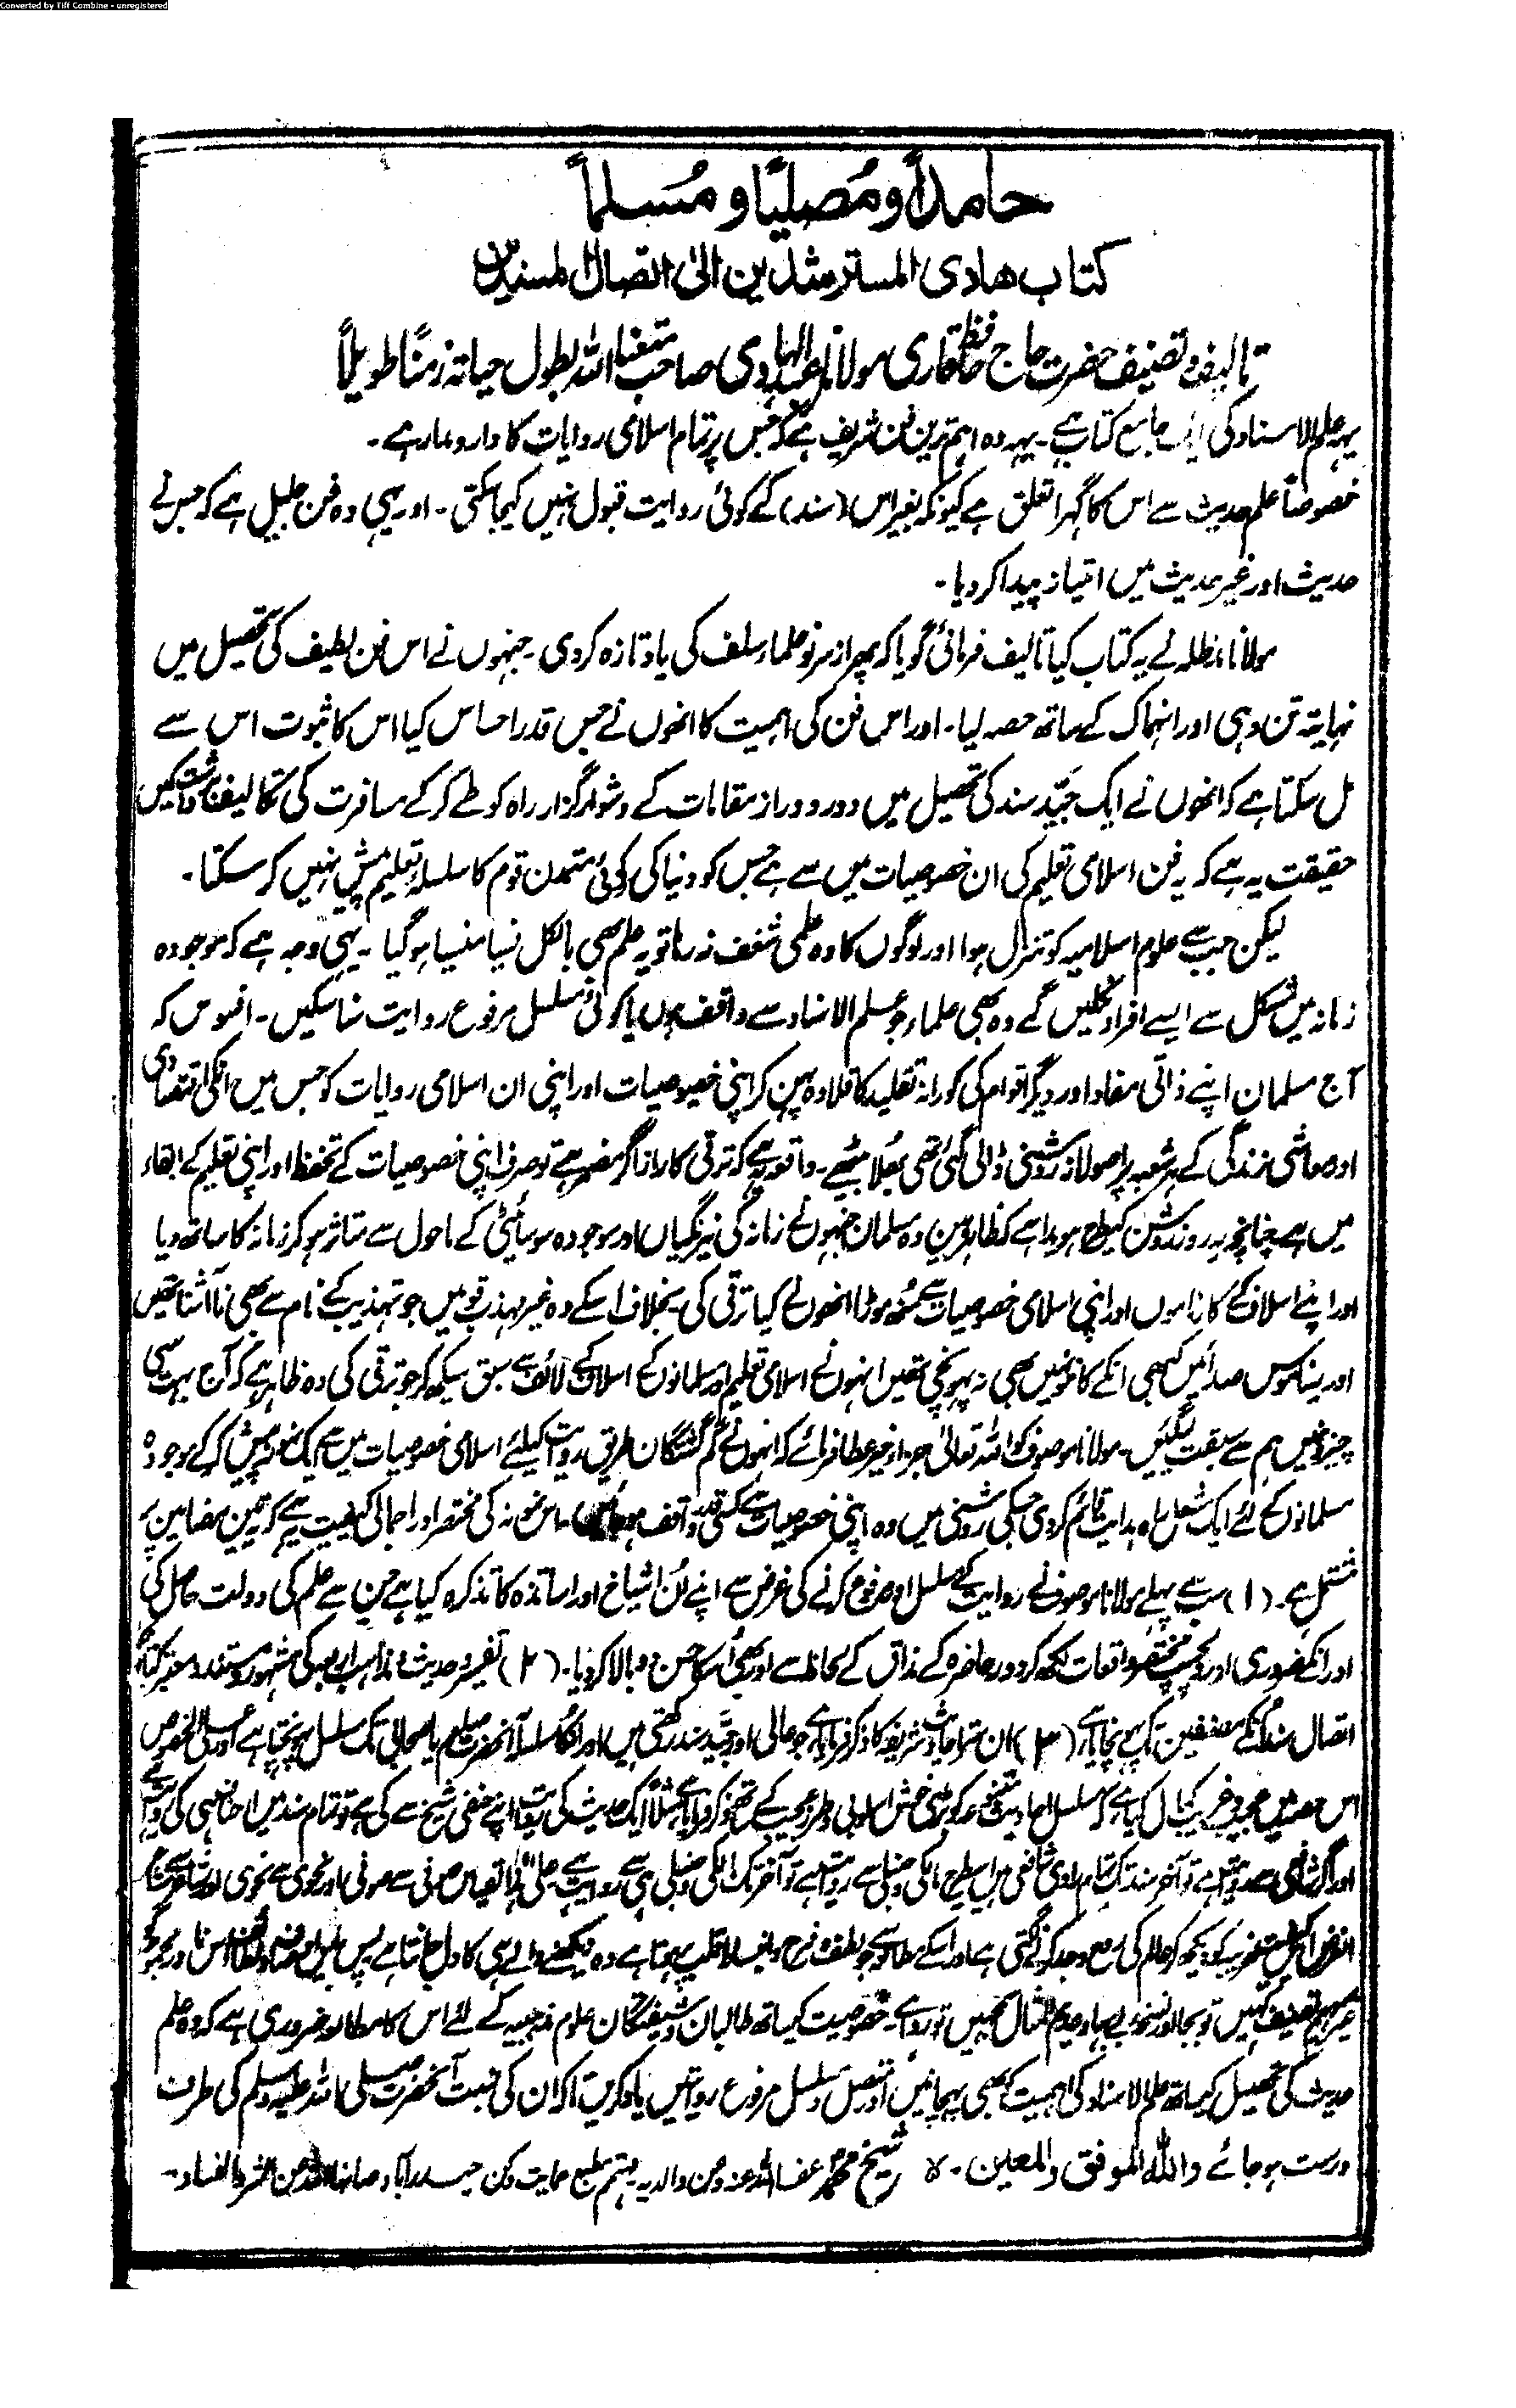 Converted by Tiff Combine - unregistered
حامداً و مُصلیًا و مُسلماً
کتاب هادی المسترشدین الیٰ اتصال المسندین
تالیف و تصنیف حضرت حاج حافظ قاری مولانا عبدالہادی صاحب متعنا اللہ بطول حیاتہ زمنًا طویلاً
یہہ علم الاسناد کی ایک جامع کتاب ہے۔ یہہ وہ اہم ترین فن شریف ہے کہ جس پر تمام اسلامی روایات کا دار و مدار ہے۔
خصوصاً علم حدیث سے اس کا گہرا تعلق ہے کیونکہ بغیر اس (سند) کے کوئی روایت قبول نہیں کیجاسکتی۔ اور یہی وہ فن جلیل ہے کہ جس نے
حدیث اور غیر حدیث میں امتیاز پیدا کر دیا۔
مولانا مدظلہ نے یہ کتاب کیا تالیف فرمائی گویا کہ پھر از سر نو علماء سلف کی یاد تازہ کردی۔ جنہوں نے اس فن لطیف کی تحصیل میں
نہایتہ تن دہی اور انہماک کے ساتھ حصہ لیا۔ اور اس فن کی اہمیت کا انھوں نے جس قدر احساس کیا اس کا ثبوت اس سے
مل سکتا ہے کہ انھوں نے ایک جیّد سند کی تحصیل میں دور و دراز مقامات کے دشوار گزار راہ کو طے کر کے مسافرت کی تکالیف برداشت کیں
حقیقت یہ ہے کہ یہ فن اسلامی تعلیم کی ان خصوصیات میں سے ہے جس کو دنیا کی کوئی متمدن قوم کا سلسلہ تعلیم پیش نہیں کر سکتا۔
لیکن جب سے علوم اسلامیہ کو تنزل ہوا اور لوگوں کا وہ علمی شغف نہ رہا تو یہ علم بھی بالکل نسیا منسیا ہوگیا۔ یہی وجہ ہے کہ موجودہ
زمانہ میں مشکل سے ایسے افراد نکلیں گے وہ بھی علماء جو علم الاسناد سے واقف ہوں یا کوئی مسلسل مرفوع روایت سنا سکیں۔ افسوس کہ
آج مسلمان اپنے ذاتی مفاد اور دیگر اقوام کی کورانہ تقلید کا قلادہ پہن کر اپنی خصوصیات اور اپنی ان اسلامی روایات کو جس میں انکی اقتصادی
اور معاشی زندگی کے ہر شعبہ پر اصولانہ روشنی ڈالی گئی تھی بھلا بیٹھے۔ واقعہ یہ ہے کہ ترقی کا راز اگر مضمر ہے تو صرف اپنی خصوصیات کے تحفظ اور اپنی تعلیم کے ابقاء
میں ہے چنانچہ یہ روز روشن کیطرح ہویدا ہے کہ ظاہر بین وہ مسلمان جنہوں نے زمانہ کی نیرنگیاں اور موجودہ سوسائٹی کے ماحول سے متاثر ہو کر زمانہ کا ساتھ دیا
اور اپنے اسلاف کے کارناموں اور اپنی اسلامی خصوصیات سے مُنھ موڑا انھوں نے کیا ترقی کی بخلاف اسکے وہ غیر مہذب قومیں جو تہذیب کے نام سے بھی ناآشنا تھیں
اور یہ مانوس صدائیں کبھی انکے کانوں میں بھی نہ پہونچی تھیں انہوں نے اسلامی تعلیم اور مسلمانوں کے اسلاف کے لائف سے سبق سیکھ کر جو ترقی کی وہ ظاہر ہے کہ آج بہت سی
چیزوں میں ہم سے سبقت لیگئیں۔ مولانا موصوف کو اللہ تعالیٰ جزاء خیر عطا فرمائے کہ انہوں نے گم گشتگان طریق روایت کیلئے اسلامی خصوصیات میں سے ایک نمونہ پیش کر کے موجودہ
مسلمانوں کے لئے ایک مشعل راہ ہدایت قائم کردی جسکی روشنی میں وہ اپنی خصوصیات سے کسی قدر واقف ہوجائیں۔ اس نمونہ کی مختصر اور اجمالی کیفیت یہ ہے کہ تین مضامین پر
مشتمل ہے۔ (۱) سب سے پہلے مولانا موصوف نے روایت کے مسلسل اور مرفوع کرنے کی غرض سے اپنے اُن اشیاخ اور اساتذہ کا تذکرہ کیا ہے جن سے علم کی دولت حاصل کی
اور انکے ضروری اور دلچسپ مختصر واقعات لکھ کر دور حاضرہ کے مذاق کے لحاظ سے اور بھی اُسکا حسن دوبالا کردیا۔ (۲) تفسیر و حدیث و مذاہب اربعہ کی مشہور و مستند و معتبر کتابونکا
اتصال سند انکے مصنفین تک پہونچایا ہے (۳) ان ستر احادیث شریفہ کا ذکر فرمایا ہے جو عالی اور جیّد سند رکھتی ہیں اور انکا سلسلہ آنحضرت صلعم یا صحابی تک مسلسل پہونچتا ہے اور علی الخصوص
اس حصہ میں عجیب و غریب کمال کیا ہے کہ مسلسل احادیث کو بڑی خوش اسلوبی و طرز عجیب کے ساتھ ذکر فرمایا ہے مثلاً ایک حدیث کی روایت اپنے حنفی شیخ سے کی ہے تو تمام سند میں احناف ہی کی روایت ہے
اور اگر شافعی سے روایت ہے تو آخر سند تک تمام راوی شافعی ہیں اسیطرح مالکی و حنبلی سے روایت ہے تو آخر تک مالکی و حنبلی ہی سے روایت ہے علیٰ ہٰذا القیاس صوفی سے صوفی اور نحوی سے نحوی اور شاعر سے شاعر
کو دیکھ کر عالم کی روح وجد کرنے لگتی ہے اور اسکے مطالعہ سے جو لطف و فرح و انبساط قلب ہوتا ہے وہ دیکھنے والے ہی کا دل جانتا ہے پس
تعریف کریں تو بجا اور عدیم المثال کہیں تو روا ہے۔ خصوصیت کیساتھ طالبان و شیفتگان علوم مذہبیہ کے لئے اس کا مطالعہ ضروری ہے کہ وہ علم
حدیث کی تحصیل کیساتھ علم الاسناد کی اہمیت کو بھی پہچانیں اور متصل و مسلسل مرفوع روایتیں یاد کریں تاکہ ان کی نسبت آنحضرت صلی اللہ علیہ وسلم کی طرف
درست ہوجائے واللہ الموفق والمعین۔ شیخ محمد عفا اللہ عنہ و عن والدیہ۔ مہتمم مطبع حمایت دکن حیدرآباد صانہا اللہ من الشر والفساد۔